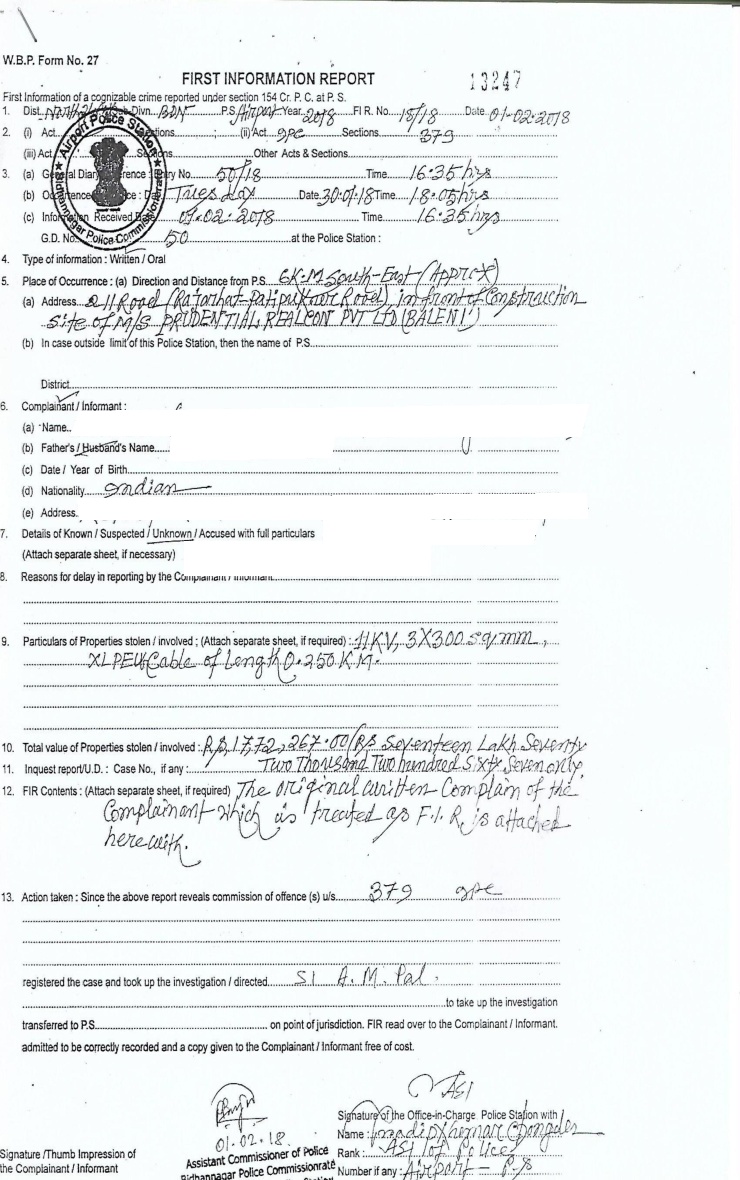 W.B.P. Form No. 27
FIRST INFORMATION REPORT
13247
First Information of a cognizable crime reported under section 154 Cr. P. C. at P. S.
1. Dist. Divn. BDN P.S Airport Year 2018 FI R. No. 15/18 Date 01-02-2018
2. (i) Act Sections ; (ii) Act IPC Sections 379
(iii) Act Sections Other Acts & Sections
3. (a) General Diary Reference : Entry No. 50/18 Time 16:35 hrs
(b) Occurrence : Day Tuesday Date 30.01.18 Time 18:05 hrs
(c) Information Received Date 01.02.2018 Time 16:35 hrs
G.D. No. 50 at the Police Station :
Airport Police Station
Bidhannagar Police Commissionerate
4. Type of information : Written / Oral
5. Place of Occurrence : (a) Direction and Distance from P.S 6K.M South-East (Approx)
(a) Address 211 Road (Rajarhat- Road), in front of Construction
site of M/S PRUDENTIAL REALCON PVT LTD
(b) In case outside limit of this Police Station, then the name of P.S.
District
6. Complainant / Informant :
(a) Name..
(b) Father's / Husband's Name
(c) Date / Year of Birth
(d) Nationality Indian
(e) Address.
7. Details of Known / Suspected / Unknown / Accused with full particulars
(Attach separate sheet, if necessary)
8. Reasons for delay in reporting by the Complainant / Informant
9. Particulars of Properties stolen / involved ; (Attach separate sheet, if required) : 11KV, 3X300 sq.mm,
Cable of Length 0.250 K.M.
10. Total value of Properties stolen / involved : RS, 17,72,267.00/RS Seventeen Lakh Seventy
11. Inquest report/U.D. : Case No., if any : Two Thousand Two hundred Sixty Seven only,
12. FIR Contents : (Attach separate sheet, if required) The original written Complain of the
Complainant which is treated as F.I.R, is attached
herewith.
13. Action taken : Since the above report reveals commission of offence (s) u/s. 379 IPC
registered the case and took up the investigation / directed SI A.M. Pal.
to take up the investigation
transferred to P.S. on point of jurisdiction. FIR read over to the Complainant / Informant.
admitted to be correctly recorded and a copy given to the Complainant / Informant free of cost.
ASI
Signature of the Office-in-Charge Police Station with
01.02.18
Name : Kumar
Assistant Commissioner of Police
Rank : ASI of Police
Signature /Thumb Impression of
the Complainant / Informant
Bidhannagar Police Commissionrate
Number if any : Airport - P.S